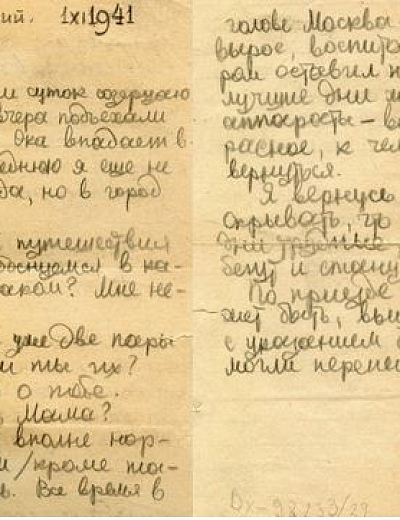 ий. 1 XI 1941
и суток созерцаю
вчера подъехали
Ока впадает в
еднюю я еще не
да, но в город
путешествия
оснуемся в ка-
аком? Мне не-
уже две пары
и ты их?
о тебе.
Мама?
вполне нор-
и /кроме та-
ь. Все время в
голове Москва
вырос, воспита
рой оставил н
лучшие дни м
аппараты – в
расное, к че
вернуться.
Я вернусь
скрывать, что
дни
бегут и стану
По приезде
жет быть, выш
с уражением
могли перепи
Вх-98233/29